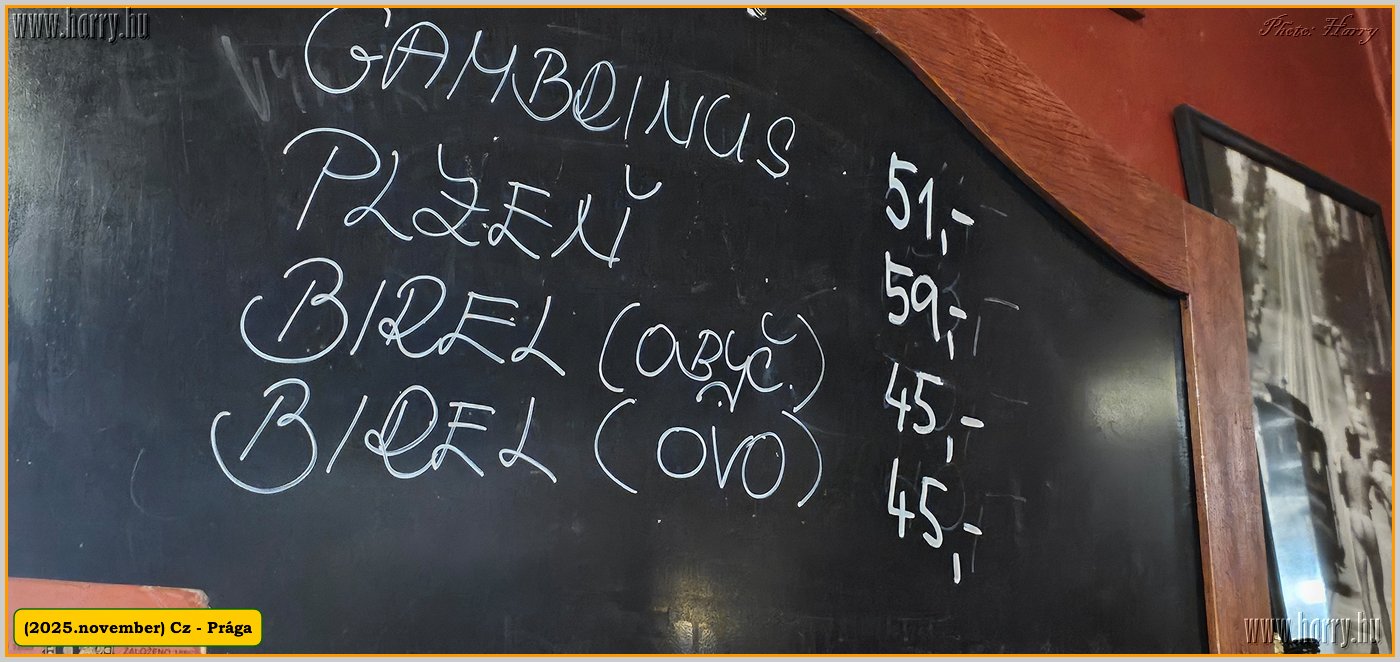 www.harry.hu
Photo: Harry
GAMBRINUS 51,-
PLZEŇ 59,-
BIREL (OBYČ.) 45,-
BIREL (OVO) 45,-
(2025.november) Cz - Prága
ZALOŽENO
www.harry.hu